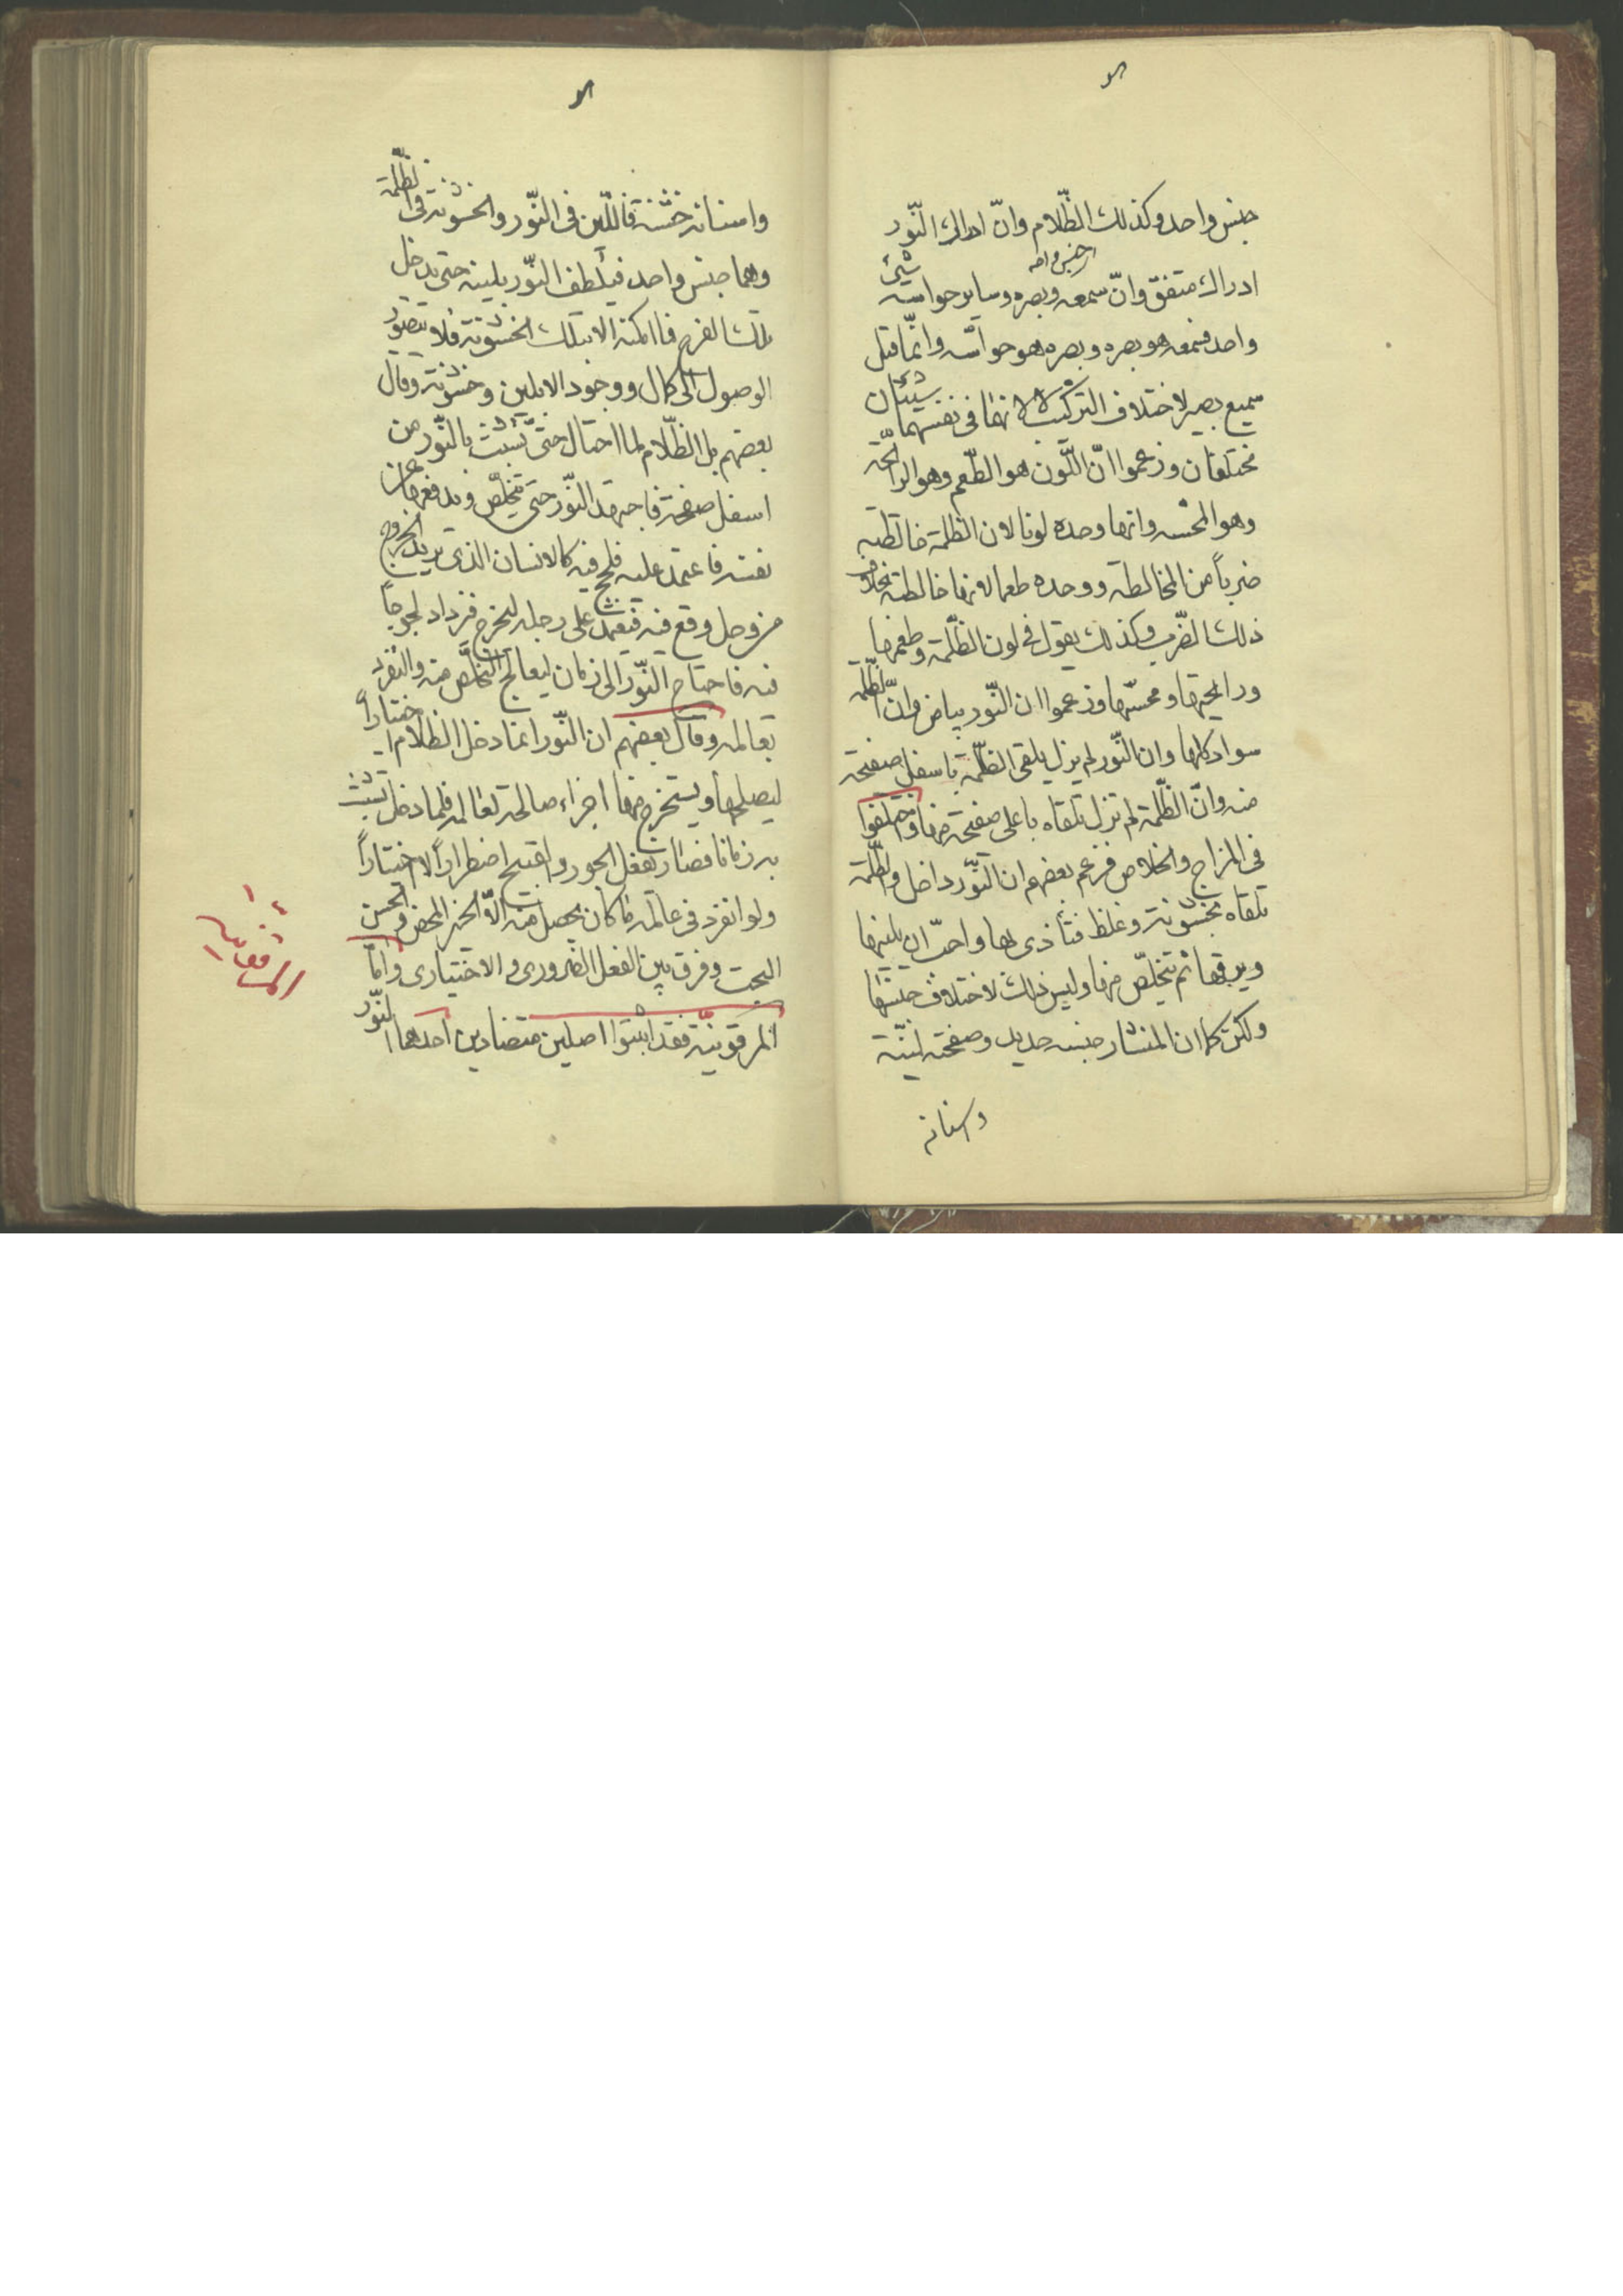 جنس واحد وكذلك الظّلام وانّ ادراك النّور
ادراك متفق وانّ سمعه وبصره وساير حواسه شيئ
واحد فسمعه هو بصره وبصره هو حواسّه وانّما قيل
سميع بصير لاختلاف التركيب لا لانهما فى نفسهما شيئان
مختلفان وزعموا انّ اللّون هو الطّعم وهو الرايحة
وهو المحسّه وانها وحده لونا لان الظلمة خالطته
ضرباً من المخالطة ووحده طعما لانها خالطته بخلاف
ذلك الضّرب وكذلك يقول فى لون الظّلمة وطعمها
ورايحتها ومحسّتها وزعموا ان النّور بياض وانّ الظّلمة
سواد كلها وان النّور لم يزل يلقى الظّلمة باسفل صفيحة
منه وانّ الظّلمة لم تزل تلقاه باعلى صفيحة منها واختلفوا
فى المزاج والخلاص فزعم بعضهم ان النّور داخل والظّلمة
تلقاه بخشونة وغلظ فتأذى بها واحبّ ان يلينها
ويرققها ثم يتخلّص منها وليس ذلك لاختلاف جنسها
ولكن كما ان المنشار جنسه حديد وصفحته ليّنة
واسنانه
واسنانه خشنة فاللّين فى النّور والخشونة فى الظّلمة
وهما جنس واحد فيلطف النّور بلينه حتى يدخل
تلك الفرج فما امكنه الا بتلك الخشونة فلا يتصوّر
الوصول الى كمال ووجود الا بلين وخشونة وقال
بعضهم بل الظّلام لما احتال حتى تشبث بالنّور من
اسفل صفحته فاجتهد النّور حتى يتخلّص ويدفعها عن
نفسه فاعتمد عليه فلجج فيه كالانسان الذى يريد الخروج
من وحل وقع فيه فيعتمد على رجله ليخرج فيزداد لجوجاً
فيه فاحتاج النّور الى زمان ليعالج التخلّص منه والتفرّد
بعالمه وقال بعضهم ان النّور انما دخل الظلام اختياراً
ليصلحها ويستخرج منها اجزاء صالحة لعالمه فلما دخل تشبث
به زمانا فصار يفعل الجور والقبيح اضطراراً لا اختياراً
ولو انفرد فى عالمه ما كان يحصل منه الّا الخير المحض والحسن
البحت وفرق بين الفعل الضرورى والاختيارى وامّا
المرقونيّة فقد اثبتوا اصلين متضادين احدهما النّور